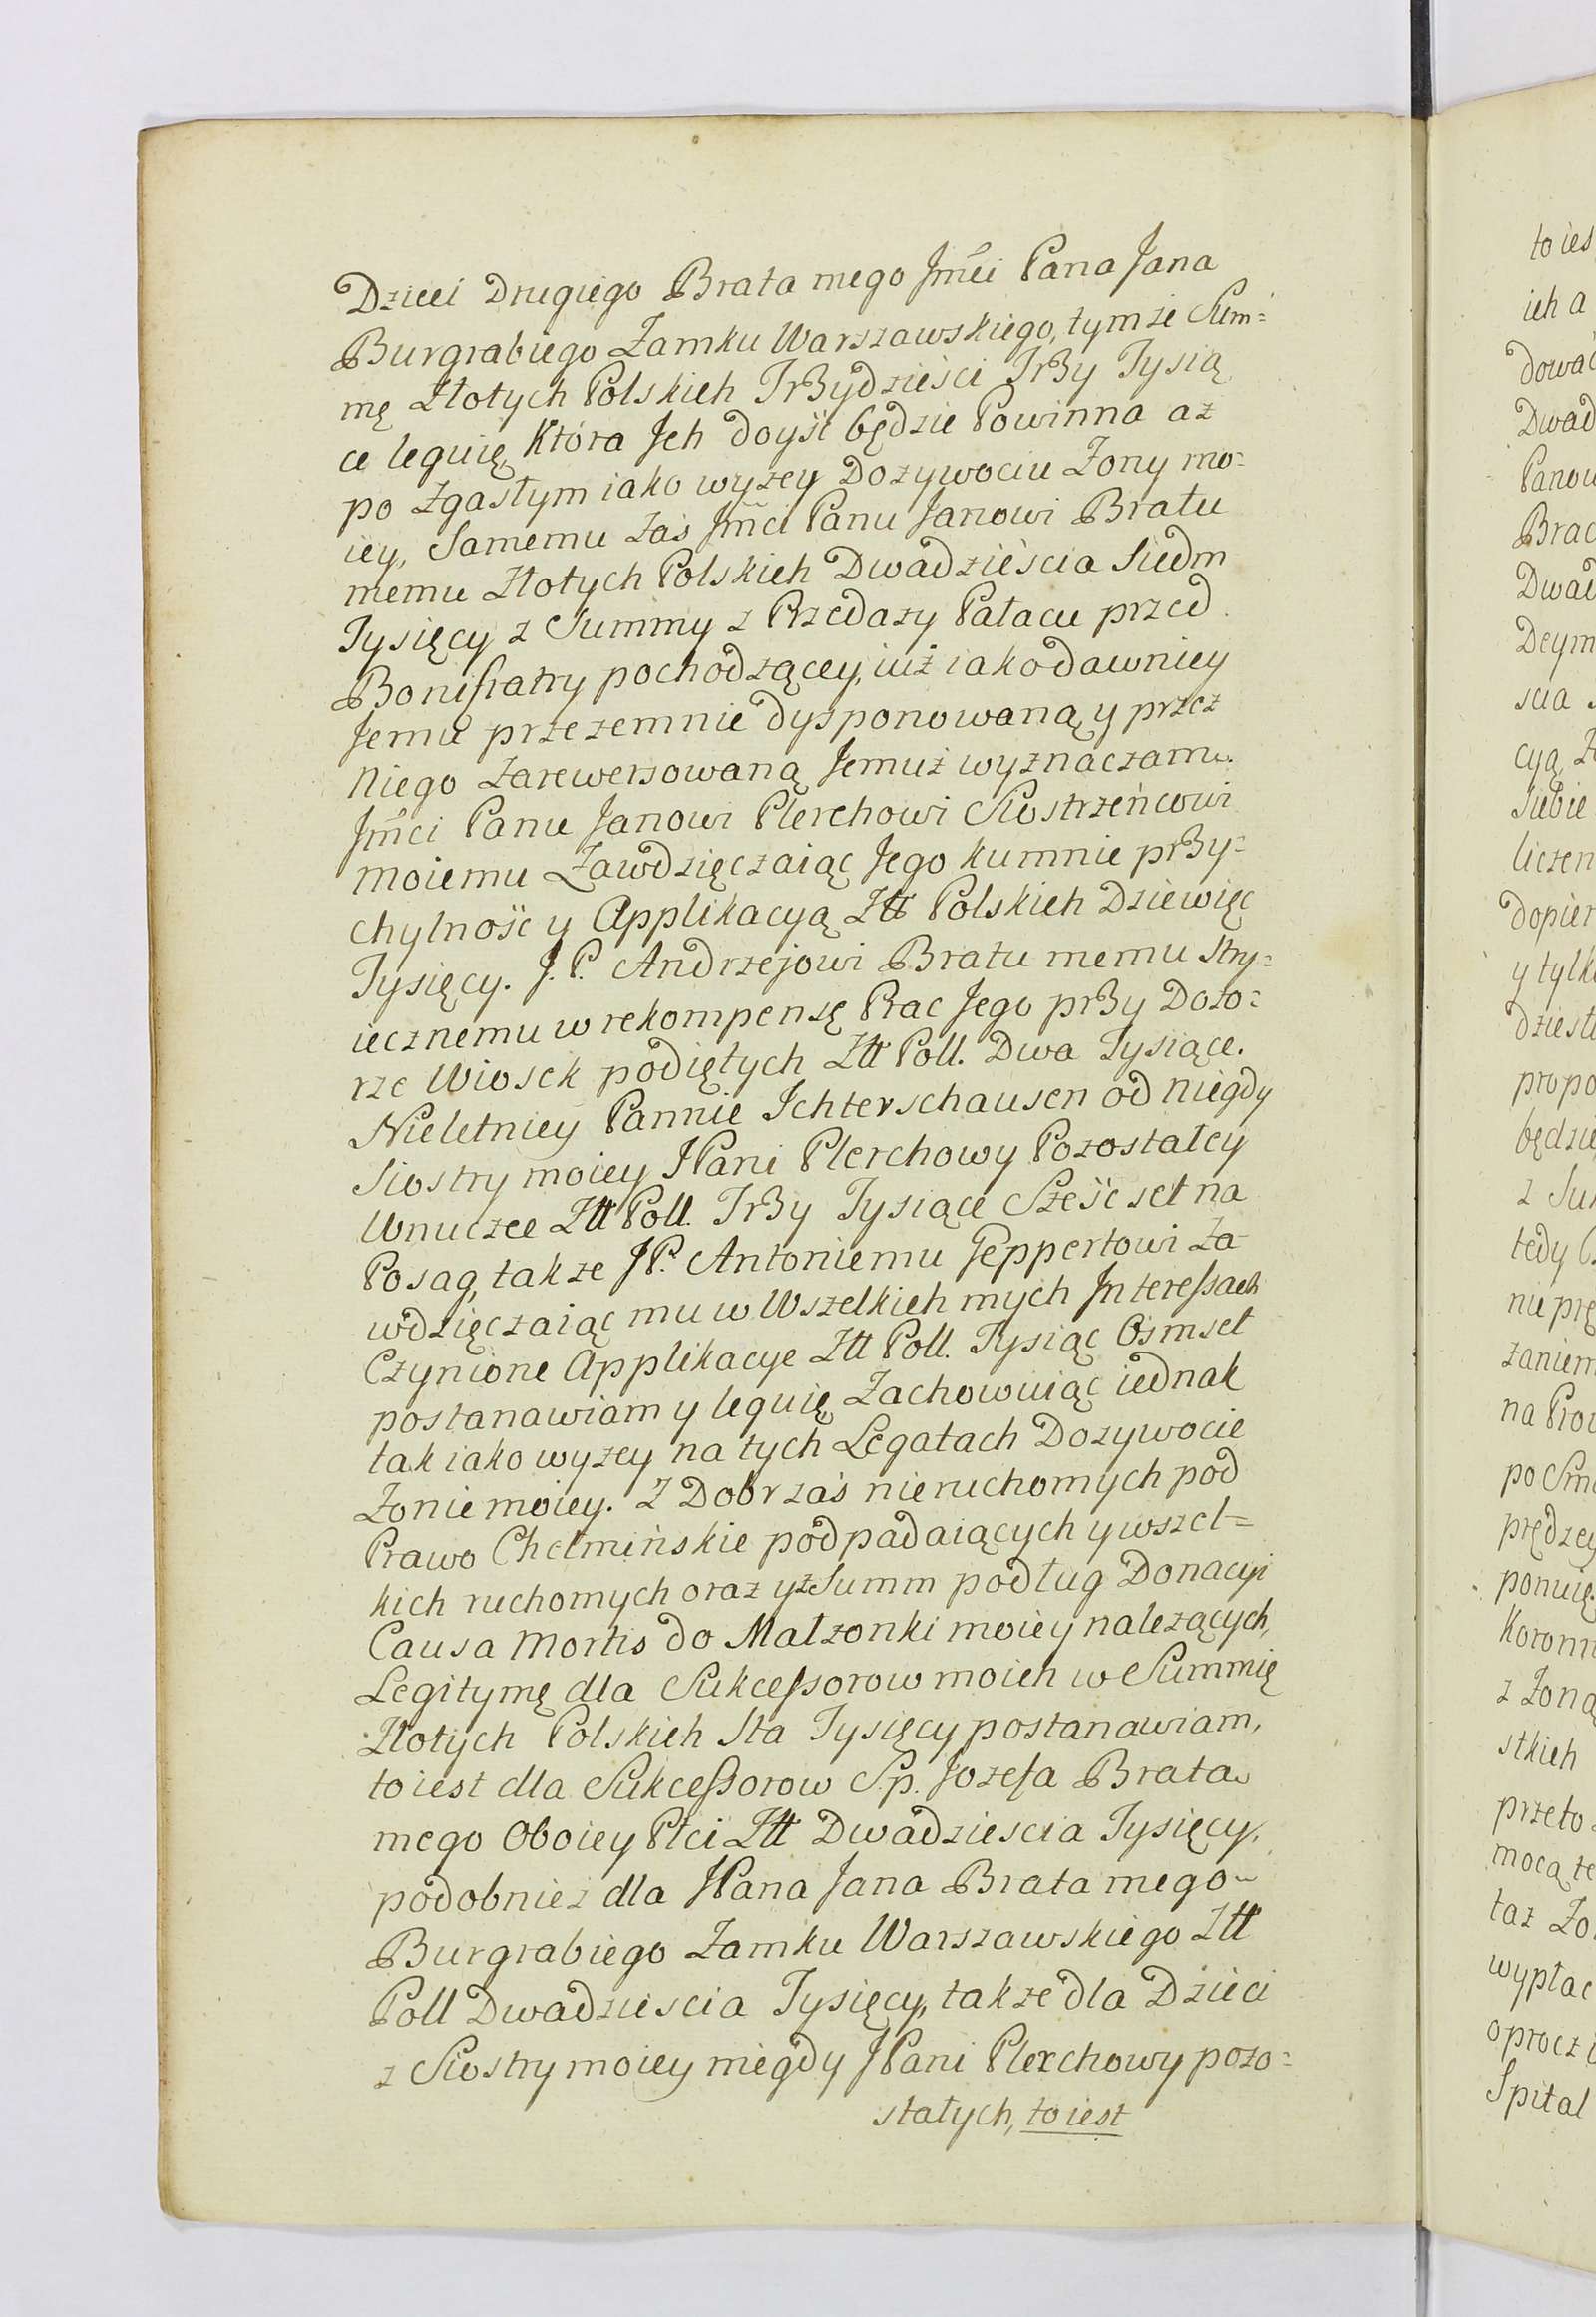 Dzieci Drugiego Brata mego Jmći Pana Jana
Burgrabiego Zamku Warszawskiego, tymże Sum=
mę Złotych Polskich Trzydzieści Trzy Tysią
ce leguię, Która Jch doyść będzie Powinna aż
po zgasłym iako wyżey Dożywociu Żony mo=
iey, Samemu zaś Jmći Panu Janowi Bratu
memu Złotych Polskich Dwadzieścia Siedm
Tysięcy z Summy z Przedaży Pałacu przed
Bonifratry pochodzącey, iuż iako dawniey
Jemu przezemnie dysponowaną y przez
Niego zarewersowaną Jemuż wyznaczam.
Jmći Panu Janowi Plerchowi Siostrzeńcowi
moiemu Zawdzięczaiąc Jego kumnie przy=
chylność y Applikacyą Ztt Polskich Dziewięc
Tysięcy. J.P. Andrzejowi Bratu memu Stry=
iecznemu w rekompensę Prac Jego przy Dozo=
rze Wiosek podiętych Ztt Poll. Dwa Tysiące.
Nieletniey Pannie Ichterschausen od niegdy
Siostry moiey JPani Plerchowy Pozostałey
Wnuczce Ztt Poll. Trzy Tysiące Sześć set na
Posag, także JP. Antoniemu Geppertowi Za
wdzięczaiąc mu w Wszelkich mych Interessach
Czynione Applikacye Ztt Poll. Tysiąc Osmset
postanawiam y leguię, Zachowuiąc iednak
tak iako wyżey na tych Legatach Dozywocie
Żonie moiey. Z Dobr zaś nieruchomych pod
Prawo Chełmińskie podpadaiących y wszel=
kich ruchomych oraz yz Summ podług Donacyi
Causa Mortis do Małzonki moiey należących,
Legitymę dla Sukcessorow moich w Summię
Złotych Polskich Sta Tysięcy postanawiam,
to iest dla Sukcessorow S.p. Jozefa Brata
mego Oboiey Płci Ztt Dwadziescia Tysięcy,
podobnież dla JPana Jana Brata mego
Burgrabiego Zamku Warszawskiego Ztt
Poll Dwadziescia Tysięcy, także dla Dzieci
z Siostry moiey niegdy JPani Plerchowy pozo=
stałych, to iest
to ies
ich a
dować
Dwad
Panow
Brac
Dwad
Deym
scia
cyą
Siebie
liczen
dopier
y tylk
dziest
propo
będzie
z Su
tedy
nie prę
zaniem
na Prow
po Sm
prędzey
ponuię
Koronn
z Żoną
stkich
przeto
mocą te
taż Żo
wypłac
oprocz
Spital